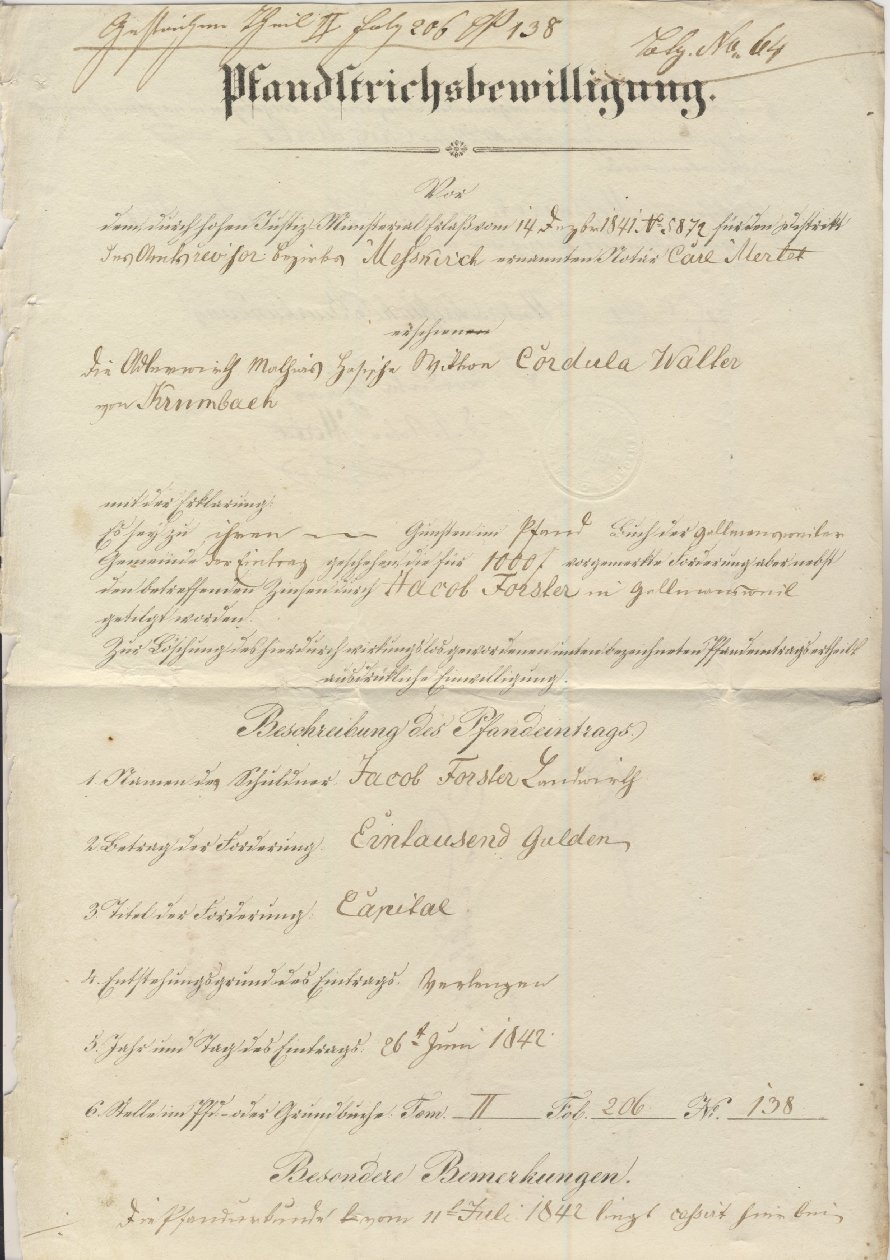 Gestrichen Theil II Foly 206 No 138
Blg. No. 64
Pfandstrichsbewilligung.
Vor
dem durch hohen Justiz Ministerial Erlaß vom 14 Dezbr 1841. No 5872 für den District
des Amtsrevisor: bezirks Messkirch ernannten Notar Carl Merket
erschienen
die Adlerwirth Mathais Wittwe Cordula Walter
von Krumbach
mit der Erklärung:
Es sey zu ihren Gunsten im Pfand Buch der
Gemeinde der Eintrag geschehen, die für 1000 f vorgemerkte Forderung aber nebst
den betreffenden Zinsen durch Jacob Forster in
getilgt worden.
Zur Löschung des hierdurch wirkungslos gewordenen unten bezeichneten Pfandeintrags ertheilt
ausdrükliche Einwilligung.
Beschreibung des Pfandeintrags
1. Namen des Schuldner: Jacob Forster Landwirth
2. Betrag der Forderung: Eintausend Gulden
3. Titel der Forderung: Capital
4. Entstehungsgrund des Eintrags: Verlangen
5. Jahr und Tag des Eintrags: 26t Juni 1842
6. Stelle im Pfd- oder Grundbuche: Tom. II Fol. 206 Nr. 138
Besondere Bemerkungen.
Die Pfandurkunde vom 11t Juli 1842 liegt cassirt hier bei